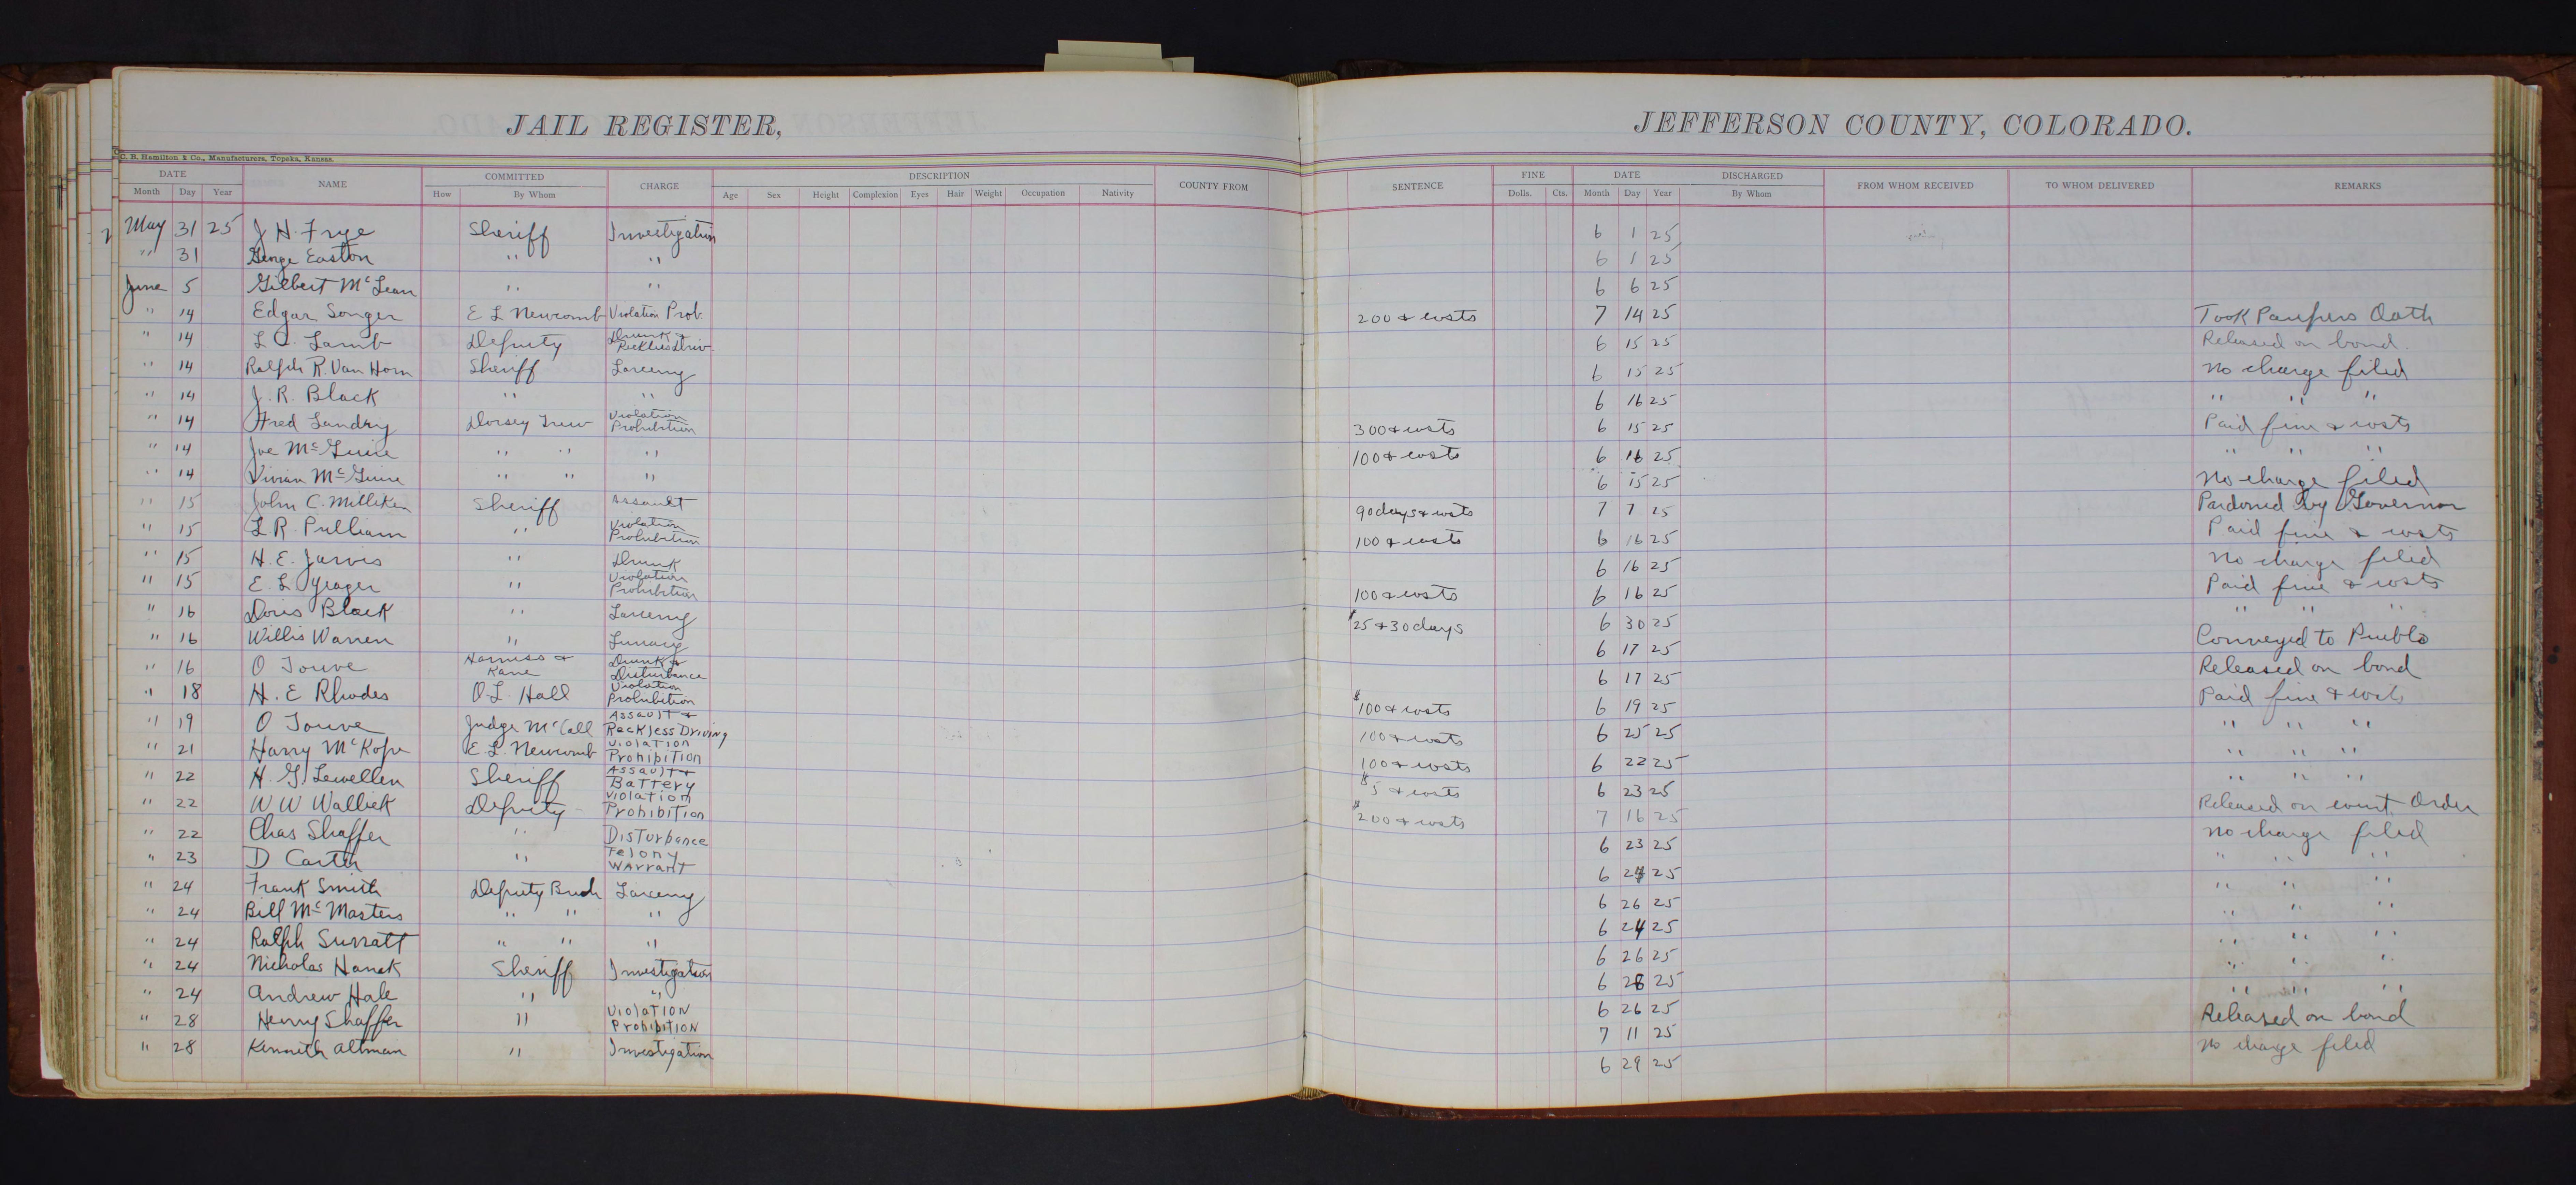 JAIL REGISTER,
JEFFERSON COUNTY, COLORADO.
C. B. Hamilton & Co., Manufacturers, Topeka, Kansas.
DATE NAME COMMITTED CHARGE DESCRIPTION COUNTY FROM SENTENCE FINE DATE DISCHARGED FROM WHOM RECEIVED TO WHOM DELIVERED REMARKS
Month Day Year How By Whom Age Sex Height Complexion Eyes Hair Weight Occupation Nativity Dolls. Cts. Month Day Year By Whom
May 31 25 J H. Frye Sheriff Investigation 6 1 25
" 31 George Easton " " 6 1 25
June 5 Gilbert McLean " " 6 6 25
" 14 Edgar Songer E L Newcomb Violation Prob. 200 & costs 7 14 25 Took Paupers Oath
" 14 L. C. Lamb Deputy Drunk & Reckless Driv. 6 15 25 Released on bond.
" 14 Ralph R. Van Horn Sheriff Larceny 6 15 25 No charge filed
" 14 J. R. Black " " 6 16 25 " " "
" 14 Fred Landry Dorsey Trew Violation Prohibition 300 & costs 6 15 25 Paid fine & costs
" 14 Joe McGuire " " " 100 & costs 6 16 25 " " "
" 14 Vivian McGuire " " " 6 15 25 No charge filed
" 15 John C. Milliken Sheriff Assault 90 days & costs 7 7 25 Pardoned by Governor
" 15 L R. Pulliam " Violation Prohibition 100 & costs 6 16 25 Paid fine & costs
" 15 H. E. Jarvis " Drunk 6 16 25 No charge filed
" 15 E. L. Yeager " Violation Prohibition 100 & costs 6 16 25 Paid fine & costs
" 16 Doris Black " Larceny $25 & 30 days 6 30 25 " " "
" 16 Willis Warren " Lunacy 6 17 25 Conveyed to Pueblo
" 16 O Jouve Harness & Kane Drunk & Disturbance 6 17 25 Released on bond
" 18 H. E Rhodes O. L. Hall Violation Prohibition $100 & costs 6 19 25 Paid fine & costs
" 19 O Jouve Judge McCall Assault & Reckless Driving 100 & costs 6 25 25 " " "
" 21 Harry McKope E L. Newcomb Violation Prohibition 100 & costs 6 22 25 " " "
" 22 H. G. Lewellen Sheriff Assault & Battery $5 & costs 6 23 25 " " "
" 22 W W Wallick Deputy Violation Prohibition $200 & costs 7 16 25 Released on court Order
" 22 Chas Shaffer " Disturbance 6 23 25 No charge filed
" 23 D Carter " Felony Warrant 6 24 25 " " "
" 24 Frank Smith Deputy Larceny 6 26 25 " " "
" 24 Bill McMasters " " " 6 24 25 " " "
" 24 Ralph Surratt " " " 6 26 25 " " "
" 24 Nicholas Hanek Sheriff Investigation 6 28 25 " " "
" 24 Andrew Hale " " 6 26 25 " " "
" 28 Henry Shaffer " Violation Prohibition 7 11 25 Released on bond
" 28 Kenneth Altman " Investigation 6 29 25 No charge filed